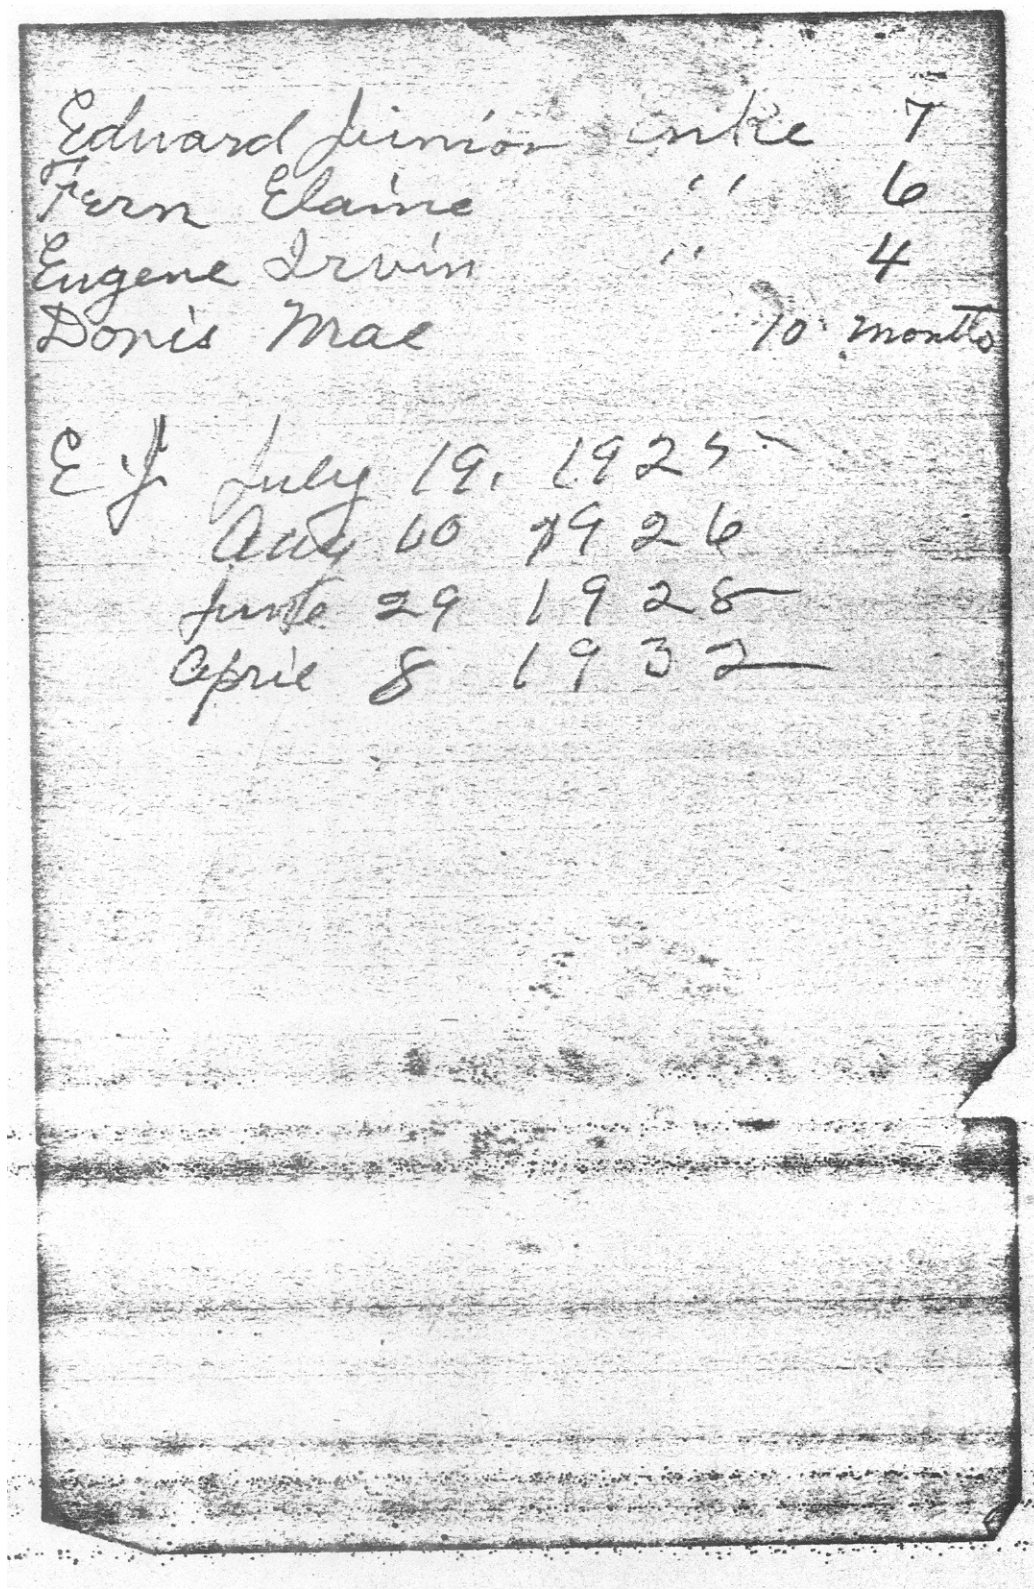 Edward Junior Inke 7
Fern Elaine " 6
Eugene Irvin " 4
Doris Mae 10 months
E J July 19, 1925
Aug 10 1926
June 29 1928
April 8 1932